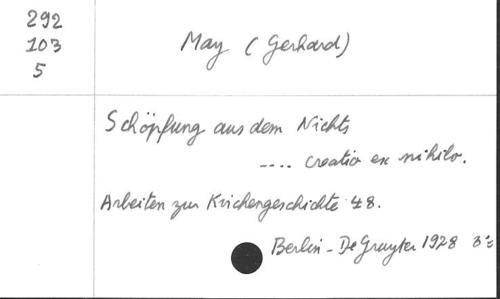 292
103
5
May (Gerhard)
Schöpfung aus dem Nichts
.... creatio ex nihilo.
Arbeiten zur Kirchengeschichte 48.
Berlin - De Gruyter 1928 8°